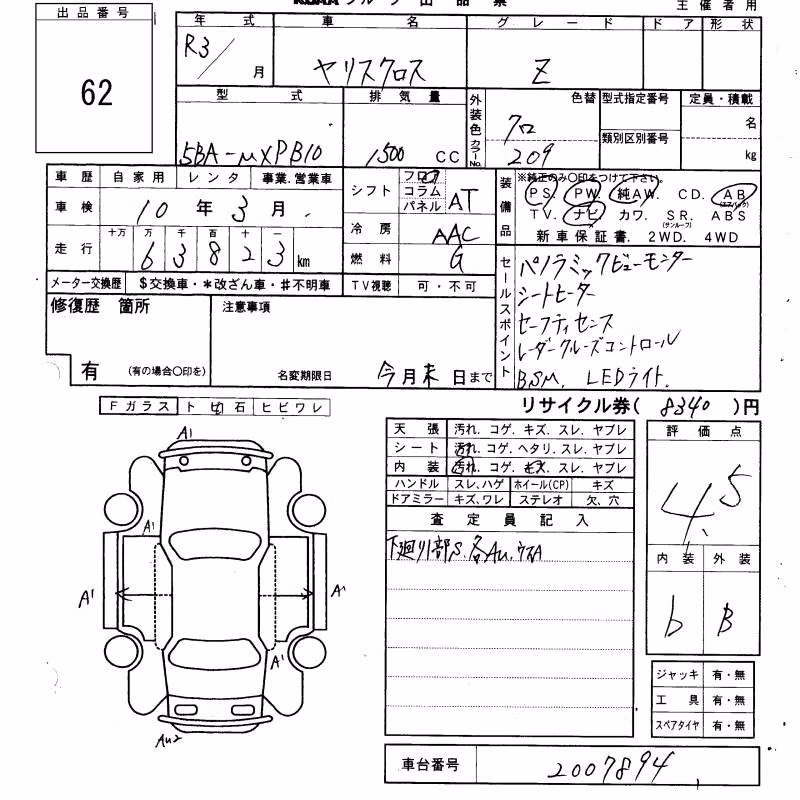 出品番号
62
主催者用
年式 車名 グレード ドア 形状
R3/月 ヤリスクロス Z
型式 排気量 外装色 色替 型式指定番号 定員・積載
5BA-MXPB10 1500 CC クロ 209 カラーNo. 類別区別番号 名 kg
車歴 自家用 レンタ 事業.営業車
車検 10年3月.
走行 十万 万 千 百 十 一
6 3 8 2 3 km
メーター交換歴 $交換車・*改ざん車・#不明車
シフト フロア コラム パネル AT
冷房 AAC
燃料 G
TV視聴 可・不可
装備品 ※純正のみ○印をつけて下さい。
PS. PW. 純AW. CD. AB(エアバック)
TV. ナビ カワ. SR.(サンルーフ) ABS
新車保証書. 2WD. 4WD
セールスポイント
パノラミックビューモニター
シートヒーター
セーフティセンス
レーダークルーズコントロール
BSM. LEDライト.
修復歴 箇所
有 (有の場合○印を)
注意事項
名変期限日 今月末日まで
リサイクル券( 8340 )円
Fガラス トビ石 ヒビワレ
A1
A1
A1
A1
A1
Au2
天張 汚れ. コゲ. キズ. スレ. ヤブレ
シート 汚れ. コゲ. ヘタリ. スレ. ヤブレ
内装 汚れ. コゲ. キズ. スレ. ヤブレ
ハンドル スレ,ハゲ ホイール(CP) キズ
ドアミラー キズ,ワレ ステレオ 欠、穴
査定員記入
下廻り部S. 各Au.
評価点
4.5
内装 外装
b B
ジャッキ 有・無
工具 有・無
スペアタイヤ 有・無
車台番号 2007894